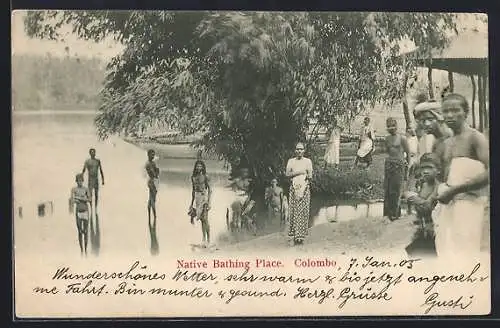 Native Bathing Place. Colombo.
7. Jan. 05
Wunderschönes Wetter, sehr warm & bis jetzt angeneh-
me Fahrt. Bin munter & gesund. Herzl. Grüsse
Gusti